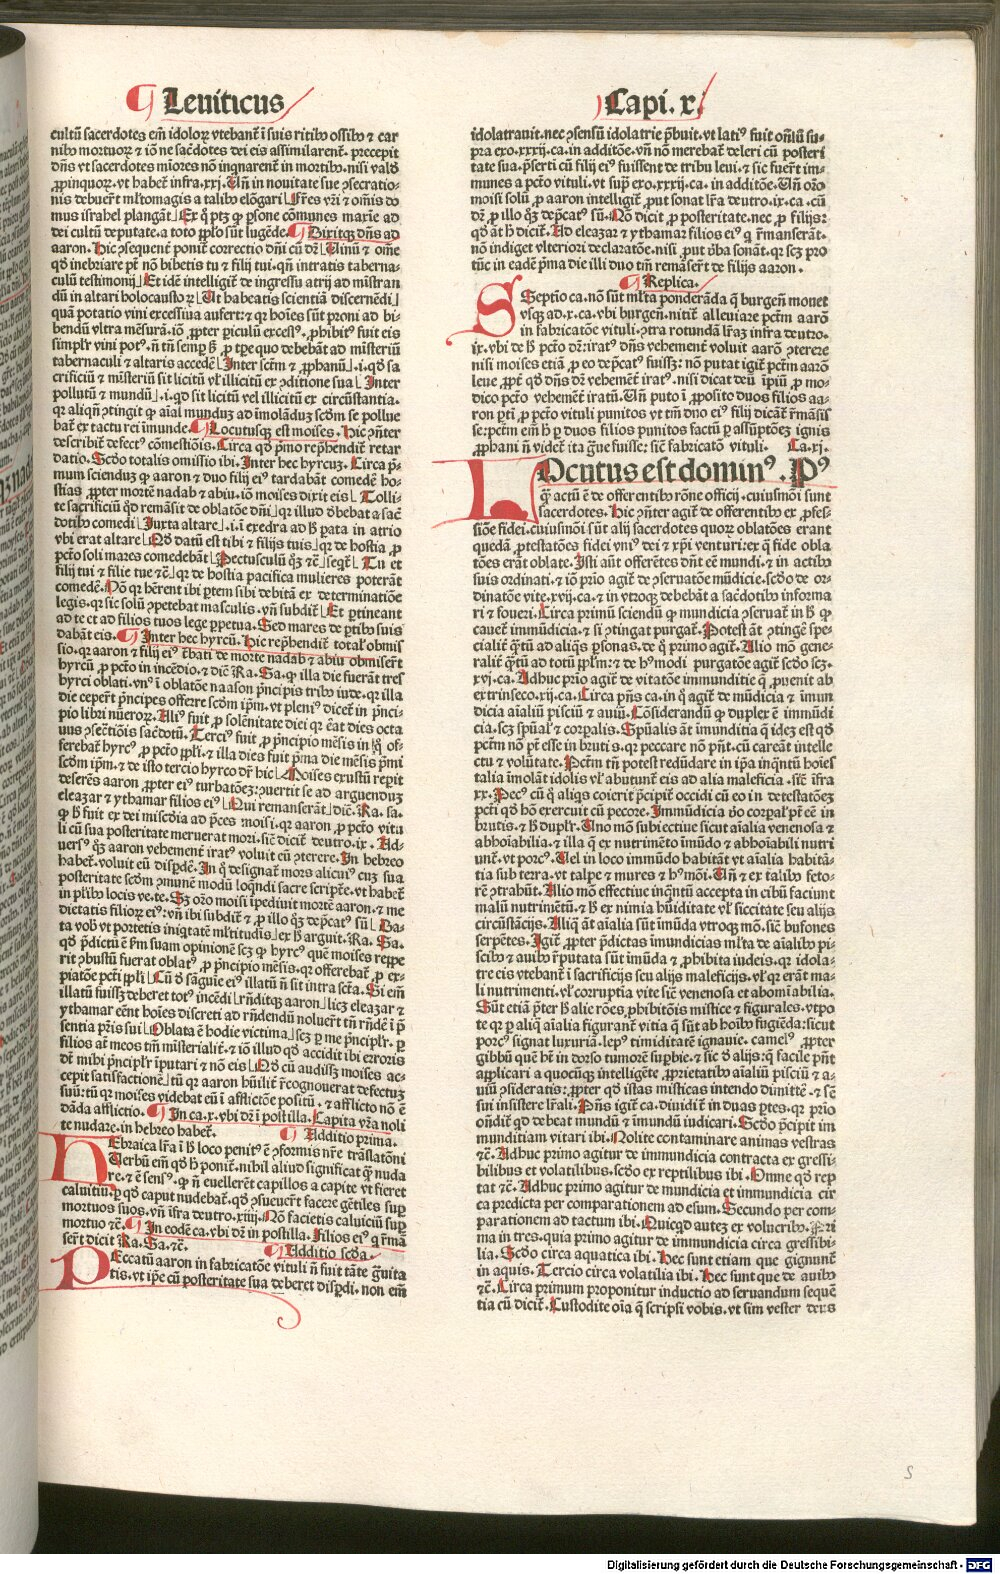 Leuiticus
Capi. x.
cultū sacerdotes em̄ idolorꝝ vtebant̄ ī suis ritibꝰ ossibꝰ ⁊ car
nibꝰ mortuorꝝ ⁊ iō ne sac̄dotes dei eis assimilarent̄. precepit
dn̄s vt sacerdotes mīores nō inqnarent̄ in mortibꝰ. nisi vald
ꝓpinquorꝝ. vt habet̄ infra. xxj. Un̄ in nouitate sue ↄsecratio-
nis debuer̄t ml̄tomagis a talibꝰ elōgari Fr̄es vr̄i ⁊ om̄is do
mus israhel plangāt Ex q̄ ptꝫ ꝙ psone cōmunes maxīe ad
dei cultū deputate. a toto ppl̄o sūt lugēde. Dixitqꝫ dn̄s ad
aaron. Hic ↄsequent̄ ponit̄ correctio dn̄i cū dr̄ Uinū ⁊ om̄e
qd̄ inebriare pt̄ nō bibetis tu ⁊ filij tui. qn̄ intratis taberna-
culū testimonij Et idē intelligit̄ de ingressu atrij ad mīstran
dū in altari holocaustorꝝ Ut habeatis scientiā discernēdi
quā potatio vini excessiua aufert̄. ⁊ qꝛ hoīes sūt proni ad bi-
bendū vltra mēsurā. iō ꝓpter piculū excessꝰ. ꝓhibitꝰ fuit eis
simplr̄ vini potꝰ. n̄ tn̄ semp sꝫ ꝓ tpe quo debebāt ad mīsteriū
tabernaculi ⁊ altaris accedē Inter sctm̄ ⁊ ꝓphanū .i. qd̄ sa
crificiū ⁊ mīsteriū sit licitū vl̓ illicitū ex ↄditione sua Inter
pollutū ⁊ mundū .i. qd̄ sit licitū vel illicitū ex circūstantia.
qꝛ aliqn̄ ↄtingit ꝙ aīal munduꝫ ad īmolāduꝫ scd̄m se pollue
bat̄ ex tactu rei īmunde. Locutusqꝫ est moises. Hic ↄn̄ter
describit̄ defectꝰ cōmestiōis. Circa qd̄ pmo rep̄hendit̄ retar
datio. Scd̄o totalis omissio ibi. Inter hec hyrcuꝫ. Circa p̄-
mum sciendum ꝙ aaron ⁊ duo filij eiꝰ tardabāt comedē ho-
stias ꝓpter mortē nadab ⁊ abiu. iō moises dixit eis Tolli-
te sacrificiū qd̄ remāsit de oblatōe dn̄i qꝛ illud d̄ebat a sac̄
dotibꝰ comedi Iuxta altare .i. ī exedra ad h̄ pata in atrio
vbi erat altare Qd̄ datū est tibi ⁊ filijs tuis qꝛ de hostia ꝓ
pctō soli mares comedebāt Pectusculū qꝫ ⁊c̄ seqt̄ Tu et
filij tui ⁊ filie tue ⁊c̄ qꝛ de hostia pacifica mulieres poterāt
comedē. Nō qꝛ hērent ibi ptem sibi debitā ex determinatiōe
legis. qꝛ sic solū ↄpetebat masculis. vn̄ subdit̄ Et ptineant
ad te et ad filios tuos lege ppetua. Sed mares de ptibꝰ suis
dabāt eis. Inter hec hyrcū. Hic rep̄hendit̄ total̓ obmis
sio. qꝛ aaron ⁊ filij eiꝰ t̄bati de morte nadab ⁊ abiu obmiser̄t
hyrcū ꝓ pctō in incēdio. ⁊ dic̄ Ra. Sa. ꝙ illa die fuerāt tres
hyrci oblati. vnꝰ ī oblatōe naason p̄ncipis tribꝰ iude. qꝛ illa
die ceper̄t p̄ncipes offerre scd̄m ip̄m. vt pleniꝰ dicet̄ in p̄nci-
pio libri nūerorꝝ. Aliꝰ fuit ꝓ solēnitate diei qꝛ ēat dies octa
uus ↄsecratiōis sac̄dotū. Terciꝰ fuit ꝓ p̄ncipio mēsis in q̄ of-
ferebat̄ hyrcꝰ ꝓ pctō ppl̓i. ⁊ illa dies fuit p̄ma die mēsis p̄mi
scd̄m ip̄m. ⁊ de isto tercio hyrco dr̄ hic Moises exustū repit
deserēs aaron ꝓpter eiꝰ turbatōeꝫ. ↄuertit se ad arguenduꝫ
eleazar ⁊ ythamar filios eiꝰ Qui remanserāt dic̄. Ra. sa.
ꝙ h̄ fuit ex dei misc̄dia ad p̄ces moisi. qꝛ aaron ꝓ pctō vitu
li cū sua posteritate meruerat mori. sic̄ dicit̄ deutro. ix. Ad-
uersꝰ qꝫ aaron vehement̄ iratꝰ voluit eū ↄterere. In hebreo
habet̄. voluit eū disp̄dē. In q̄ designat̄ mors alicuiꝰ cuꝫ sua
posteritate scd̄m ↄmunē modū loqndi sacre scripte. vt habet̄
in plibꝰ locis ve. te. Sꝫ or̄o moisi īpediuit mortē aaron. ⁊ me
dietatis filiorꝝ eiꝰ: vn̄ ibi subdit̄ ⁊ ꝓ illo qꝫ dep̄catꝰ sū Da-
ta vob̄ vt portetis iniqtatē ml̓titudis ex h̄ arguit. Ra. Sa.
qd̄ p̄dictū ē fm̄ suam opinionē scꝫ ꝙ hyrcꝰ quē moises reppe
rit ↄbustū fuerat oblatꝰ ꝓ p̄ncipio mēsis. qꝛ offerebat̄ ꝓ ex-
piatōe pcti ppl̓i Cū d̄ sāguīe eiꝰ illatū n̄ sit intra scta. Si em̄
illatū fuissꝫ deberet totꝰ incēdi rn̄ditqꝫ aaron licꝫ eleazar ⁊
ythamar eēnt hoīes discreti ad rn̄dendū noluer̄t tn̄ rn̄dē ī p̄
sentia pr̄is sui Oblata ē hodie victima scꝫ p me p̄ncipl̓r. p
filios aūt meos tm̄ mīsterialit̄. ⁊ iō illud qd̄ accidit ibi erroris
dt̄ mibi p̄ncipl̓r īputari ⁊ nō eis Qd̄ cū audissꝫ moises ac-
cepit satisfactionē tū qꝛ aaron hūilit̄ r̄cognouerat defectuꝫ
suū: tū qꝛ moises videbat eū ī afflictōe positū. ⁊ afflicto nō ē
dāda afflictio. In ca. x. vbi dr̄ ī postilla. Capita vr̄a noli
te nudare. in hebreo habet̄. Additio prima.
HEbraica lr̄a ī h̄ loco penitꝰ ē ↄformis nr̄e trāslatōni
Uerbū em̄ qd̄ h̄ ponit̄. nihil aliud significat q̄ nuda
re. ⁊ ē sensꝰ. ꝙ n̄ euellerēt capillos a capite vt fieret
caluitiū. p qd̄ caput nudebat̄. qd̄ ↄsueuer̄t facere gētiles sup
mortuos suos. vn̄ īfra deutro. xiiij. Nō facietis caluiciū sup
mortuo ⁊c̄. In eodē ca. vbi dr̄ in postilla. Filios eiꝰ q r̄mā
ser̄t dicit Ra. Sa. ⁊c̄. Additio scd̄a.
PEccatū aaron in fabricatōe vituli n̄ fuit tāte g̓uita
tis. vt ip̄e cū posteritate sua deberet disp̄di. non em̄
idolatrauit. nec ↄsensū idolatrie p̄buit. vt latiꝰ fuit om̄iū su-
pra exo. xxxij. ca. in additōe. vn̄ nō merebat̄ deleri cū posteri
tate sua. p̄serti cū filij eiꝰ fuissent de tribu leui. ⁊ sic fuer̄t im-
munes a pctō vituli. vt supͣ exo. xxxij. ca. in additōe. Un̄ or̄o
moisi solū ꝓ aaron intelligit̄. put sonat lr̄a deutro. ix. ca. cū
dꝛ̄. ꝓ illo qꝫ dep̄catꝰ sū. Nō dicit ꝓ posteritate. nec ꝓ filijs:
qd̄ āt h̄ dicit̄. Ad eleazar ⁊ ythamar filios eiꝰ q r̄manserāt.
nō indiget vlteriori declaratōe. nisi put v̄ba sonāt. qꝛ scꝫ pro
tūc in eadē p̄ma die illi duo tm̄ remāser̄t de filijs aaron.
Replica.
SEptio ca. nō sūt ml̓ta ponderāda q̄ burgen̄ mouet
vsqꝫ ad. x. ca. vbi burgen̄. nitit̄ alleuiare pctm̄ aarō
in fabricatōe vituli. ↄtra rotundā lr̄aꝫ infra deutro.
ix. vbi de h̄ pctō dꝛ̄: iratꝰ dn̄s vehement̄ voluit aarō ↄterere
nisi moises etiā ꝓ eo dep̄catꝰ fuissꝫ: nō putat igit̄ pctm̄ aarō
leue. ꝓpt̄ qd̄ dn̄s dr̄ vehemet̄ iratꝰ. nisi dicat deū īpiū ꝓ mo-
dico pctō vehemēt̄ iratū. Un̄ puto ī ꝓposito duos filios aa-
ron pti ꝓ pctō vituli punitos vt tm̄ duo eiꝰ filij dicāt̄ r̄māsis
se: pctm̄ em̄ h̄ p duos filios punitos factū p assūptōeꝫ ignis
ꝓphani n̄ videt̄ ita g̓ue fuisse: sic̄ fabricatō vituli. Ca. xj.
LOcutus est dominꝰ. Pꝰ
q̄ actū ē de offerentibꝰ rōne officij. cuiusmōi sunt
sacerdotes. Hic ↄn̄ter agit̄ de offerentibꝰ ex ꝓfes-
siōe fidei. cuiusmōi sūt alij sacerdotes quorꝝ oblatōes erant
quedā ꝓtestatōes fidei vniꝰ dei ⁊ xp̄i venturi: ex q̄ fide obla
tōes erāt oblate. Isti aūt offerētes dn̄t eē mundi. ⁊ in actibꝰ
suis ordinati. ⁊ iō prio agit̄ de ↄseruatōe mūdicie. scd̄o de or-
dinatōe vite. xvij. ca. ⁊ in vtroqꝫ debebāt a sac̄dotibꝰ informa
ri ⁊ foueri. Circa primū sciendū ꝙ mundicia ↄseruat̄ in h̄ ꝙ
cauet̄ immūdicia. ⁊ si ↄtingat purgat̄. Potest āt ↄtingē spe-
cialit̄ q̄tū ad aliqs psonas. de q̄ primo agit̄. Alio mō gene-
ralit̄ q̄tū ad totū ppl̓m: ⁊ de hꝰmodi purgatōe agit̄ scd̄o scꝫ.
xvj. ca. Adhuc prio agit̄ de vitatōe immunditie q̄ ꝓuenit ab
extrinseco. xij. ca. Circa pn̄s ca. in q̄ agit̄ de mūdicia ⁊ īmun
dicia aīaliū pisciū ⁊ auiū. Cōsiderandū ꝙ duplex ē immūdi
cia. scꝫ sp̄ual̓ ⁊ corpalis. Sp̄ualis āt īmunditia q̄ idez est qd̄
pctm̄ nō pt̄ esse in brutis. qꝛ peccare nō pn̄t. cū careāt intelle
ctu ⁊ volūtate. Pctm̄ tn̄ potest redūdare in ip̄a inqntū hoīes
talia īmolāt idolis vl̓ abutunt̄ eis ad alia maleficia. sic̄ īfra
xx. Pecꝰ cū q̄ aliqs coierit p̄cipit̄ occidi cū eo in detestatōeꝫ
pcti qd̄ hō exercuit cū pecore. Immūdicia v̄o corpal̓ pt̄ eē in
brutis. ⁊ h̄ dupl̓r. Uno mō subiectiue sicut aīalia venenosa ⁊
abhoīabilia. ⁊ illa q̄ ex nutrimēto īmūdo ⁊ abhoīabili nutri
unt̄. vt porcꝰ. Uel in loco immūdo habitāt vt aīalia habitā-
tia sub terra. vt talpe ⁊ mures ⁊ hꝰmōi. Un̄ ⁊ ex talibꝰ feto-
rē ↄtrahūt. Alio mō effectiue inq̄ntū accepta in cibū faciunt
malū nutrimētū. ⁊ h̄ ex nimia hūiditate vl̓ siccitate seu alijs
circūstācijs. Aliq̄ āt aīalia sūt īmūda vtroqꝫ mō. sic̄ bufones
serpētes. Igit̄ ꝓpter p̄dictas īmundicias ml̓ta de aīalibꝰ pi-
scibꝰ ⁊ auibꝰ r̄putata sūt īmūda ⁊ ꝓhibita iudeis. qꝛ idola-
tre eis vtebant̄ ī sacrificijs seu alijs maleficijs. vl̓ qꝛ erāt ma-
li nutrimenti. vl̓ corruptīa vite sic̄ venenosa et abomīabilia.
Sūt etiā p̄ter h̄ alie rōes ꝓhibitōis mistice ⁊ figurales. vtpo
te qꝛ p aliq̄ aīalia figurant̄ vitia q̄ sūt ab hoībꝰ fugiēda: sicut
porcꝰ signat luxuriā. lepꝰ timiditatē ignauie. camelꝰ ꝓpter
gibbū quē hꝫ in dorso tumorē supbie. ⁊ sic d̄ alijs: q̄ facile pn̄t
applicari a quocūqꝫ intelligēte ꝓprietatibꝰ aīaliū pisciū ⁊ a-
uiū ↄsideratis: ꝓpter qd̄ istas misticas intendo dimittē. ⁊ sē
sui insistere lr̄ali. Pn̄s igit̄ ca. diuidit̄ in duas ptes. qꝛ prio
on̄dit̄ qd̄ debeat mundū ⁊ īmundū iudicari. Scd̄o p̄cipit im
munditiam vitari ibi. Nolite contaminare animas vestras
⁊c̄. Adhuc primo agitur de immundicia contracta ex gressi-
bilibus et volatilibus. scd̄o ex reptilibus ibi. Omne qd̄ rep
tat ⁊c̄. Adhuc primo agitur de mundicia et immundicia cir
ca predicta per comparationem ad esum. Secundo per com-
parationem ad tactum ibi. Quicqd autez ex volucribꝰ. Pri
ma in tres. quia primo agitur de immundicia circa gressibi-
lia. Scd̄o circa aquatica ibi. Hec sunt etiam que gignunt̄
in aquis. Tercio circa volatilia ibi. Hec sunt que de auibꝰ
⁊c̄. Circa primum proponitur inductio ad seruandum seque
tia cū dicit̄. Custodite oīa q̄ scripsi vobis. vt sim vester deꝰs
s
Digitalisierung gefördert durch die Deutsche Forschungsgemeinschaft - DFG